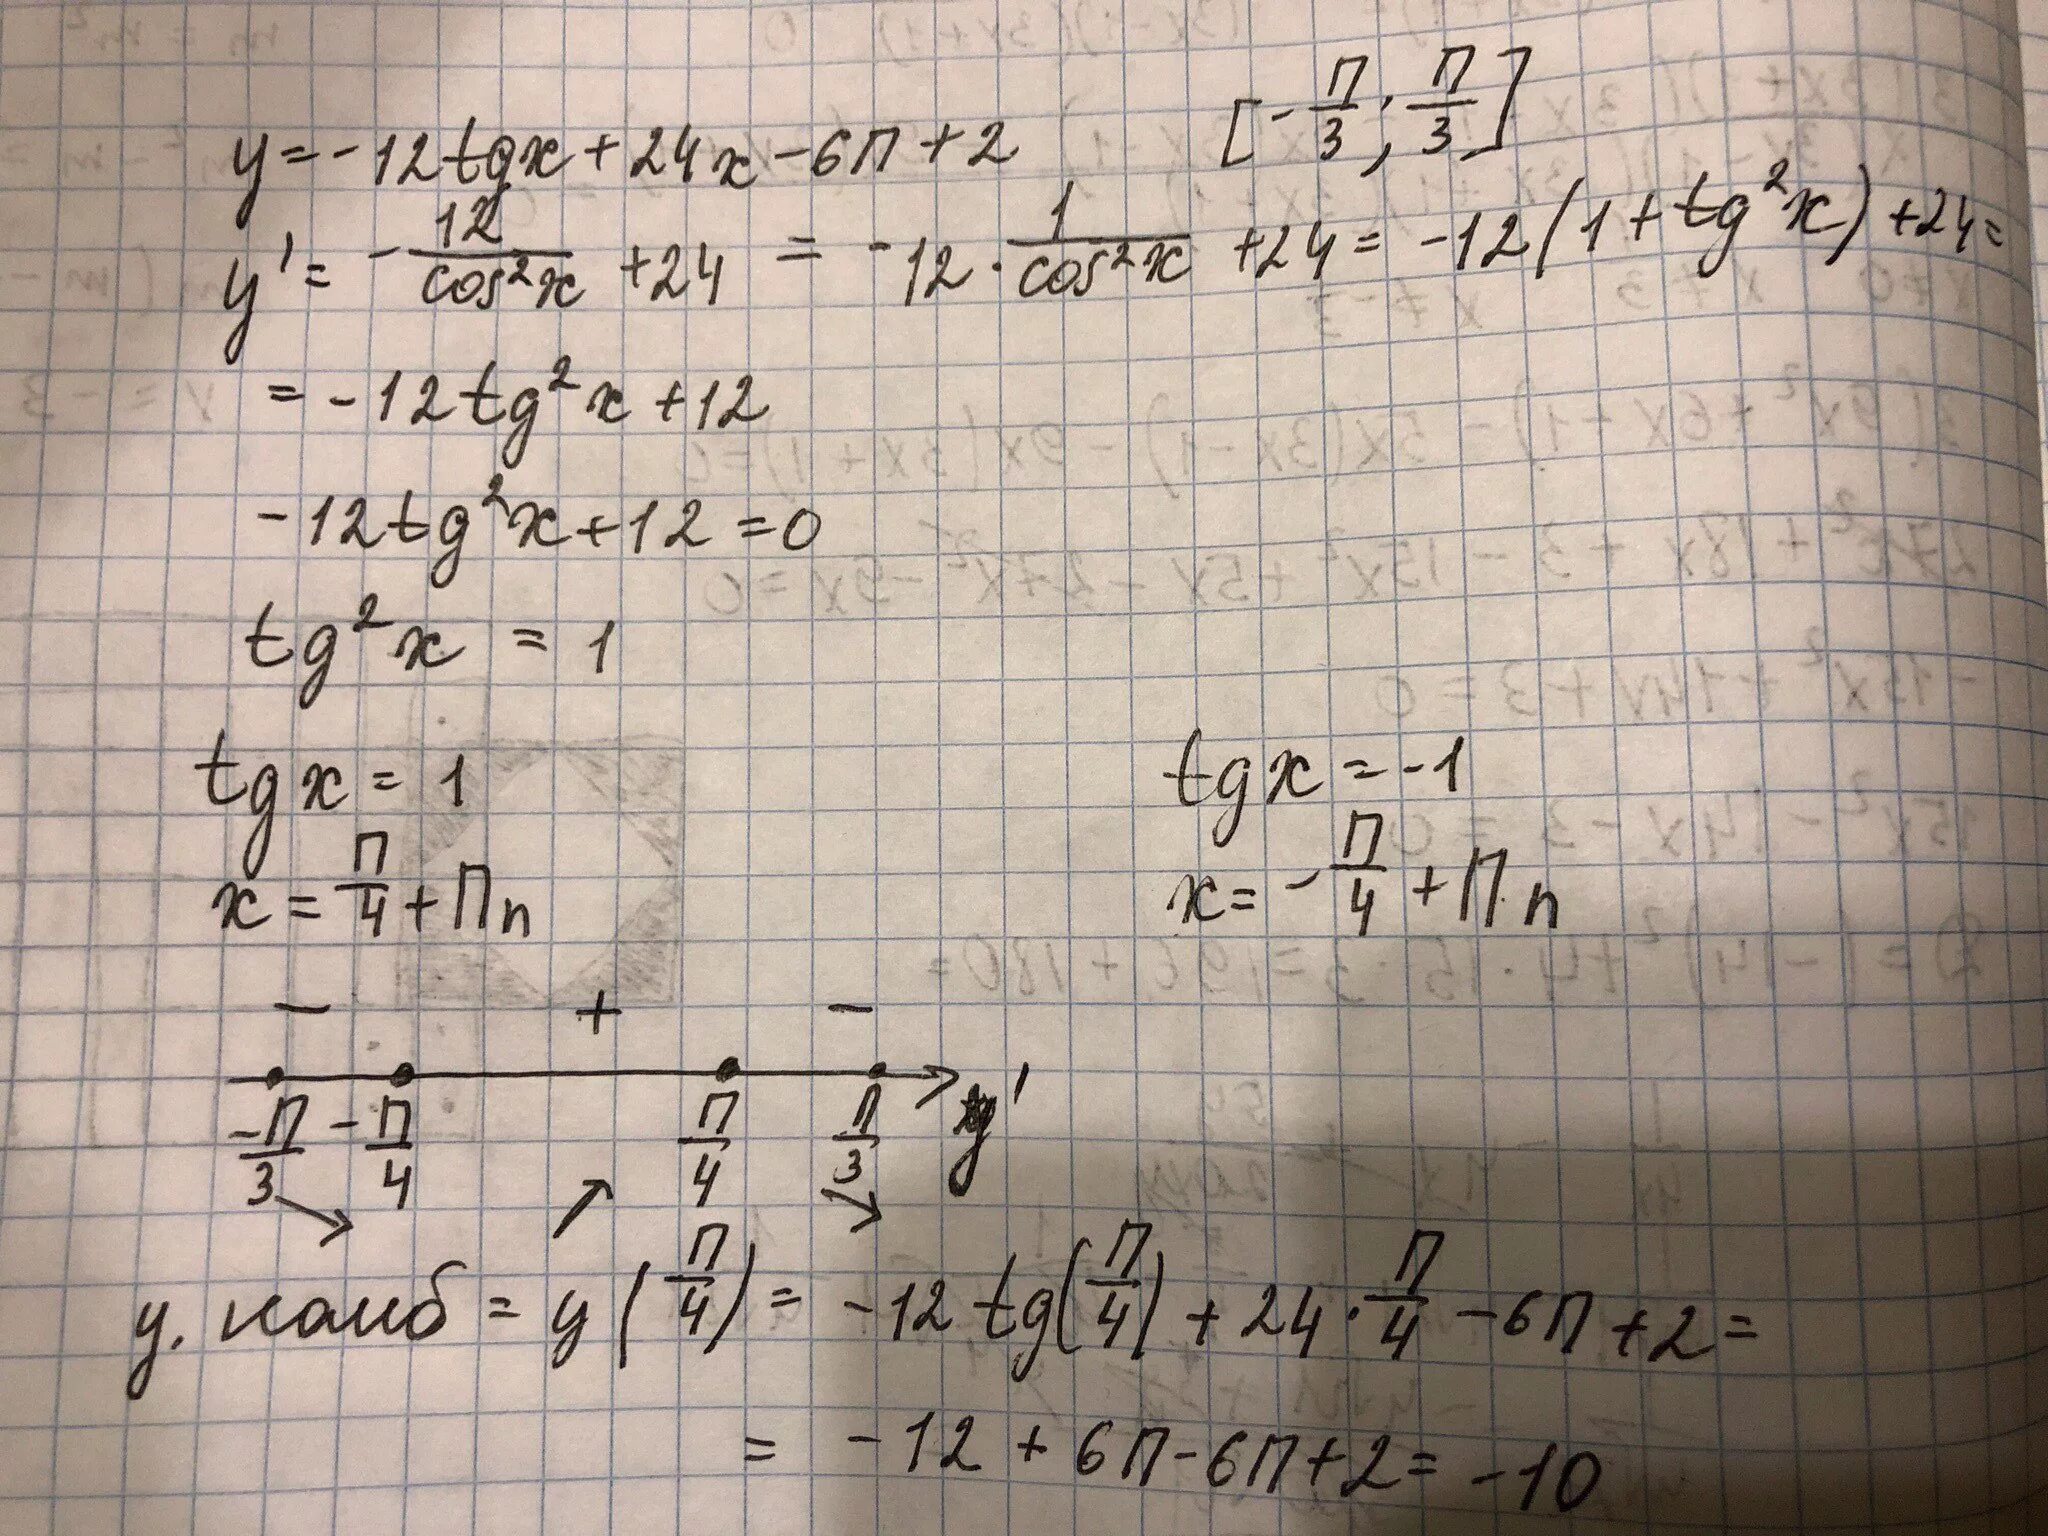 y = -12tgx + 24x - 6П + 2 [-П/3; П/3]
y' = -12/cos²x + 24 = -12 · 1/cos²x + 24 = -12(1 + tg²x) + 24 =
= -12tg²x + 12
-12tg²x + 12 = 0
tg²x = 1
tgx = 1 tgx = -1
x = П/4 + Пn x = -П/4 + Пn
- + -
-П/3 -П/4 П/4 П/3 y'
y. наиб = y(П/4) = -12tg(П/4) + 24 · П/4 - 6П + 2 =
= -12 + 6П - 6П + 2 = -10